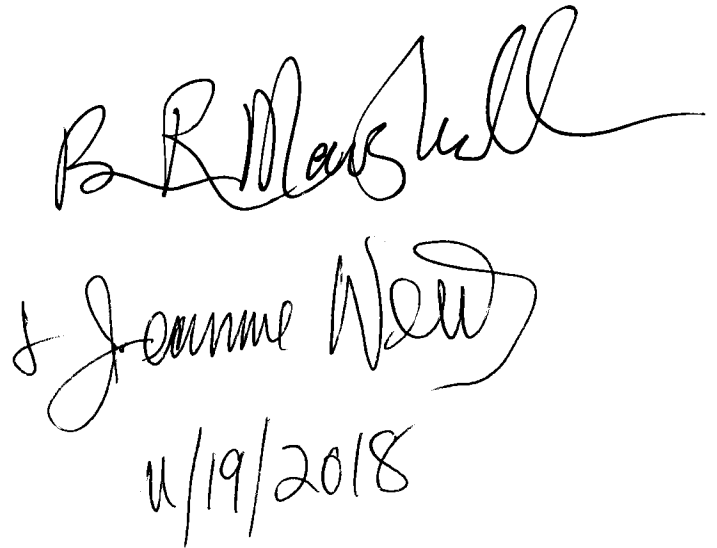 B R Marshall
& Jeannine
11/19/2018